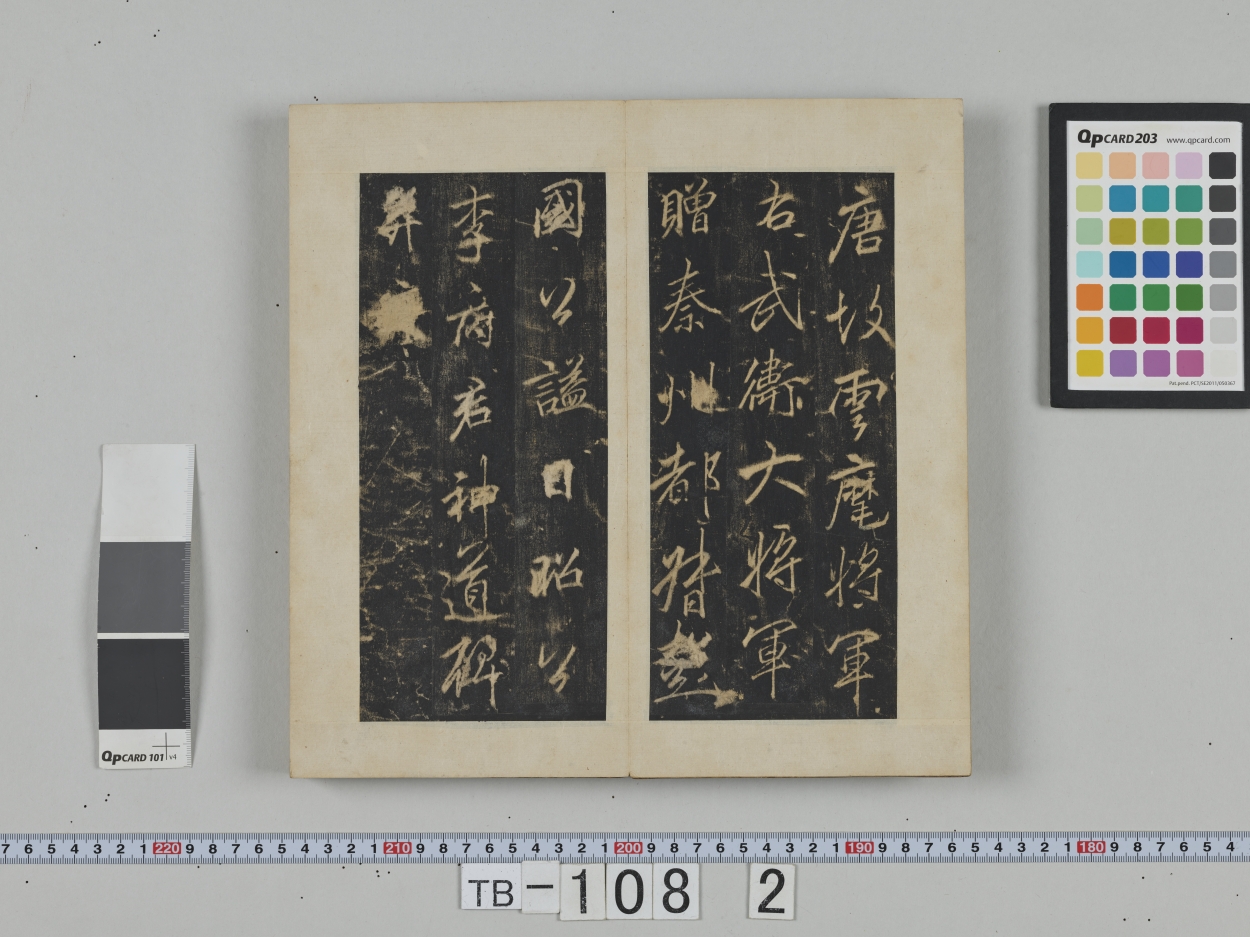 唐故雲麾將軍
右武衛大將軍
贈秦州都督彭
國公謚曰昭公
李府君神道碑
并
QPCARD 203 www.qpcard.com
Pat.pend. PCT/SE2011/050367
QPCARD 101 v4
7 6 5 4 3 2 1 220 9 8 7 6 5 4 3 2 1 210 9 8 7 6 5 4 3 2 1 200 9 8 7 6 5 4 3 2 1 190 9 8 7 6 5 4 3 2 1 180 9 8 7 6 5 4
TB-108 2